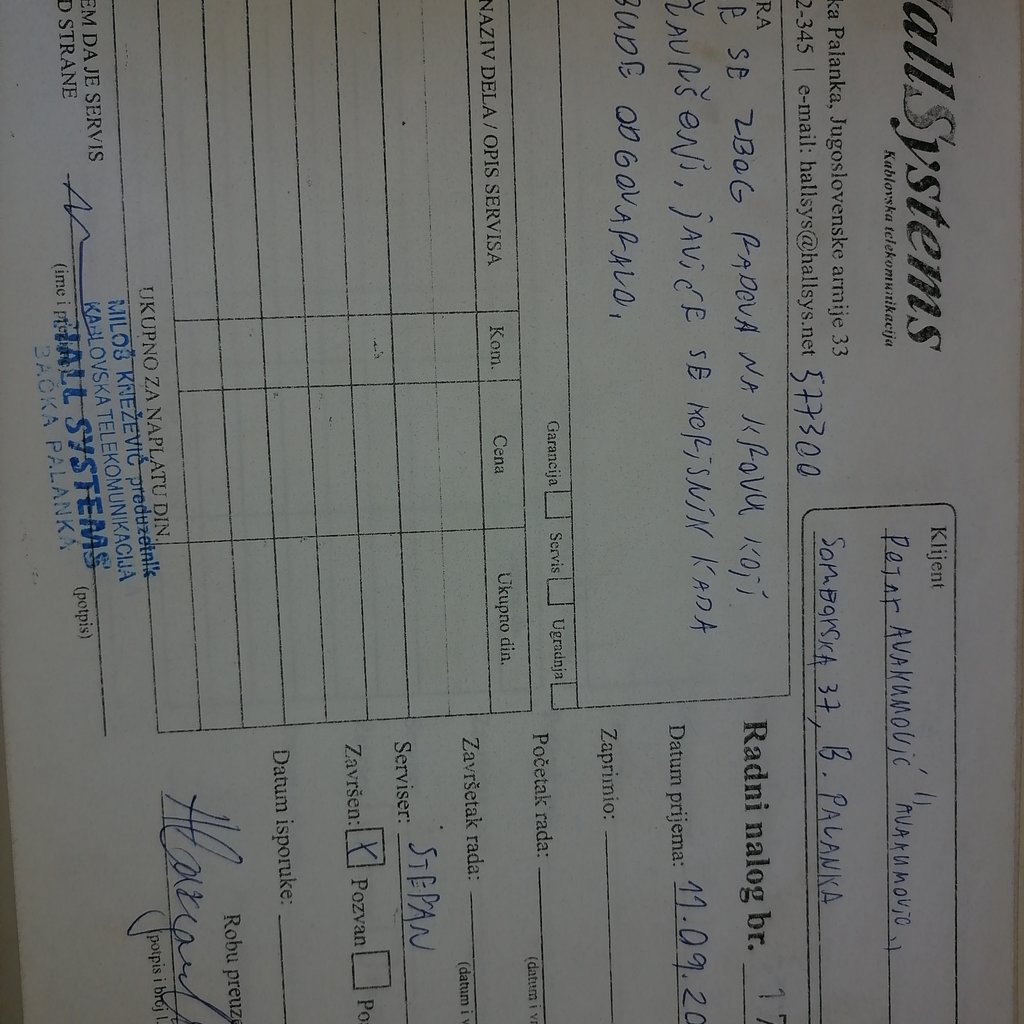 HallSystems
Kablovska telekomunikacija
ka Palanka, Jugoslovenske armije 33
2-345 | e-mail: hallsys@hallsys.net 577300
Klijent
PETAR AVAKUMOVIĆ "AVAKUMOVIĆ"
ŠAMAČKA 37, B. PALANKA
RA
E SE ZBOG RADOVA NA KROVU KOJI
ZAVRŠENI, JAVIĆE SE KORISNIK KADA
BUDE ODGOVARALO.
Garancija Servis Ugradnja
NAZIV DELA / OPIS SERVISA Kom. Cena Ukupno din.
UKUPNO ZA NAPLATU DIN.
EM DAJE SERVIS
D STRANE
(ime i
(potpis)
MILOŠ KNEŽEVIĆ preduzetnik
KABLOVSKA TELEKOMUNIKACIJA
HALL SYSTEMS
BAČKA PALANKA
Radni nalog br. 17
Datum prijema: 11.09.20
Zaprimio:
Početak rada:
(datum i vr
Završetak rada:
(datum i v
Serviser: STEPAN
Završen: X Pozvan Po
Datum isporuke:
Robu preuze
(potpis i broj l.